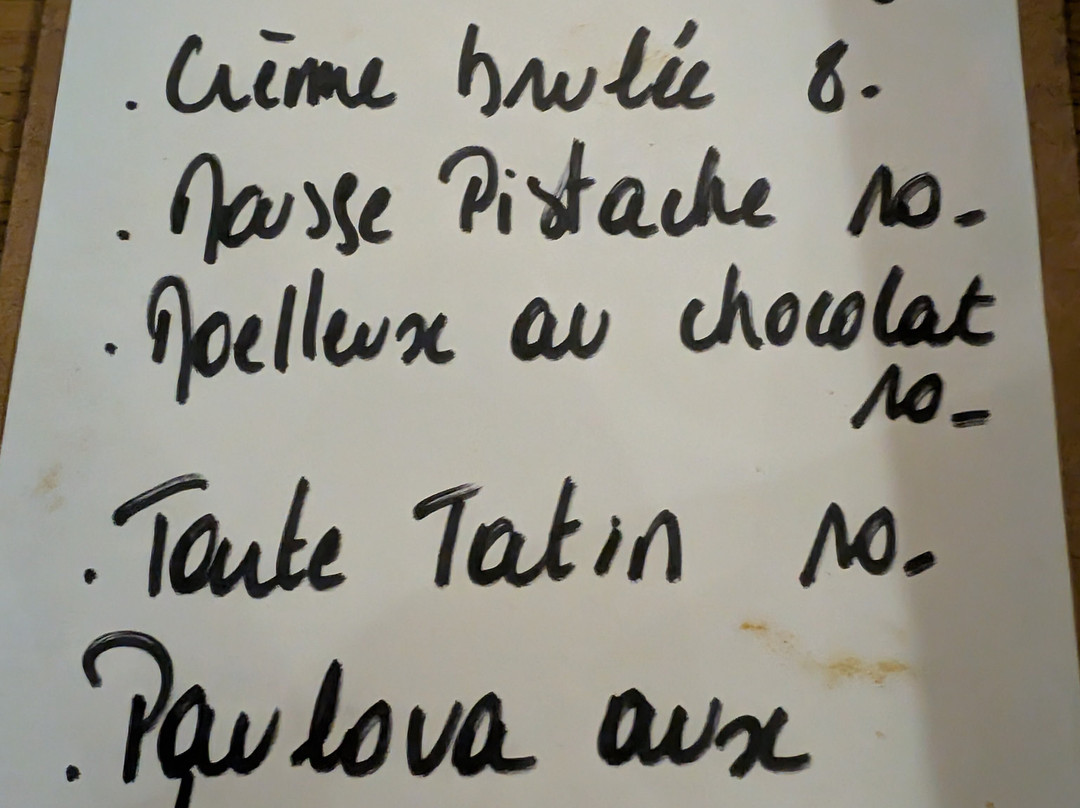 . Crème brulée 8.
. Mousse Pistache 10-
. Moelleux au chocolat
10-
. Tarte Tatin 10-
. Pavlova aux